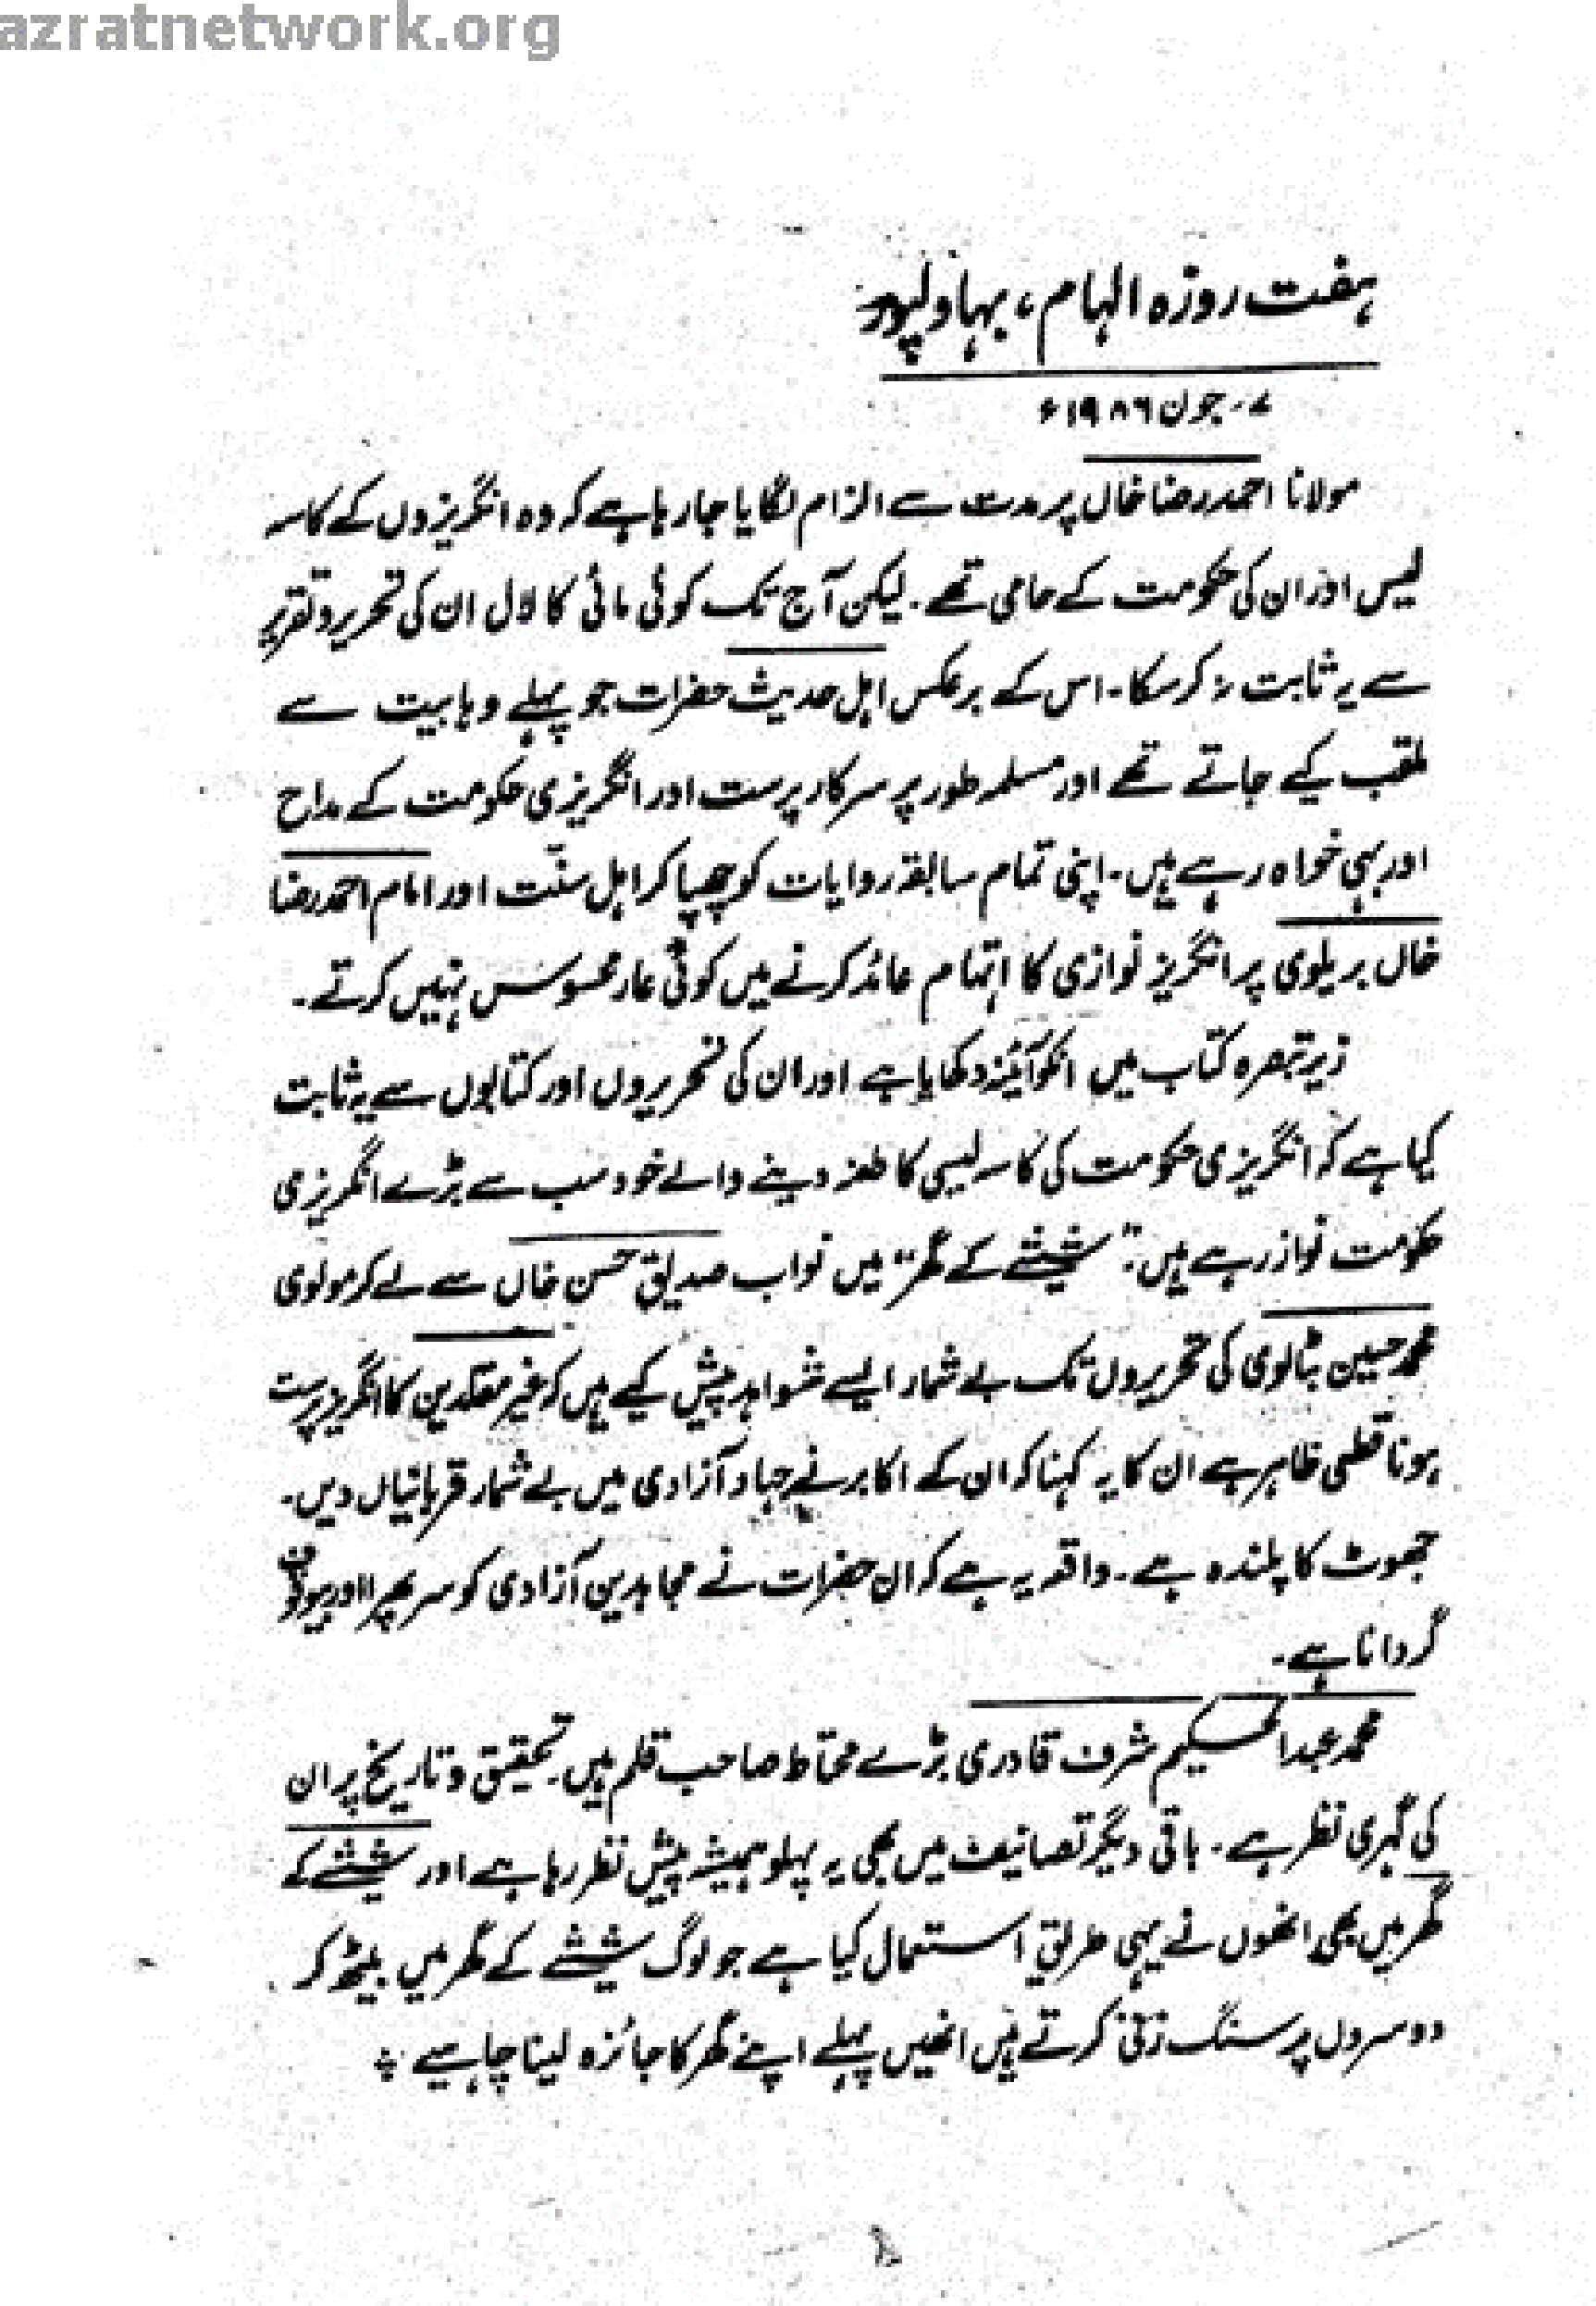 azratnetwork.org
ہفت روزہ الہام، بہاولپور
۷؍ جون ۱۹۸۶ء
مولانا احمد رضا خاں پر مدت سے الزام لگایا جا رہا ہے کہ وہ انگریزوں کے کاسہ
لیس اور ان کی حکومت کے حامی تھے۔ لیکن آج تک کوئی مائی کا لال ان کی تحریر و تقریر
سے یہ ثابت نہ کر سکا۔ اس کے برعکس اہل حدیث حضرات جو پہلے وہابیت سے
ملقب کیے جاتے تھے اور مسلمہ طور پر سرکار پرست اور انگریزی حکومت کے مداح
اور بہی خواہ رہے ہیں۔ اپنی تمام سابقہ روایات کو چھپا کر اہل سنّت اور امام احمد رضا
خاں بریلوی پر انگریز نوازی کا اتہام عائد کرنے میں کوئی عار محسوس نہیں کرتے۔
زیر تبصرہ کتاب میں انکو آئینہ دکھایا ہے اور ان کی تحریروں اور کتابوں سے یہ ثابت
کیا ہے کہ انگریزی حکومت کی کاسہ لیسی کا طعنہ دینے والے خود سب سے بڑے انگریزی
حکومت نواز رہے ہیں۔ "شیشے کے گھر" میں نواب صدیق حسن خاں سے لے کر مولوی
محمد حسین بٹالوی کی تحریروں تک بے شمار ایسے شواہد پیش کیے ہیں کہ غیر مقلدین کا انگریز پرست
ہونا قطعی ظاہر ہے ان کا یہ کہنا کہ ان کے اکابر نے جہاد آزادی میں بے شمار قربانیاں دیں۔
جھوٹ کا پلندہ ہے۔ واقعہ یہ ہے کہ ان حضرات نے مجاہدین آزادی کو سر پھرا اور بیوقوف
گردانا ہے۔
محمد عبدالحکیم شرف قادری بڑے محتاط صاحب قلم ہیں۔ تحقیق و تاریخ پر ان
کی گہری نظر ہے۔ باقی دیگر تصانیف میں بھی یہ پہلو ہمیشہ پیش نظر رہا ہے اور شیشے کے
گھر میں بھی انھوں نے یہی طریق استعمال کیا ہے جو لوگ شیشے کے گھر میں بیٹھ کر
دوسروں پر سنگ زنی کرتے ہیں انھیں پہلے اپنے گھر کا جائزہ لینا چاہیے
۸